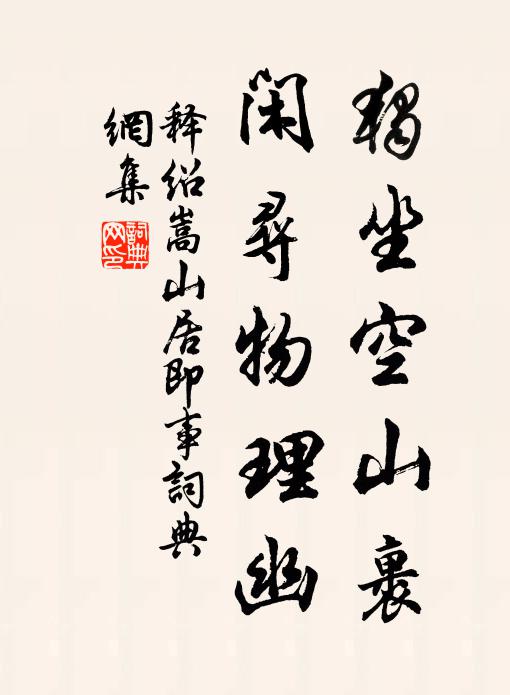 獨坐空山裏
閑尋物理幽
释绍嵩山居即事詞典
網集
詞典
网印